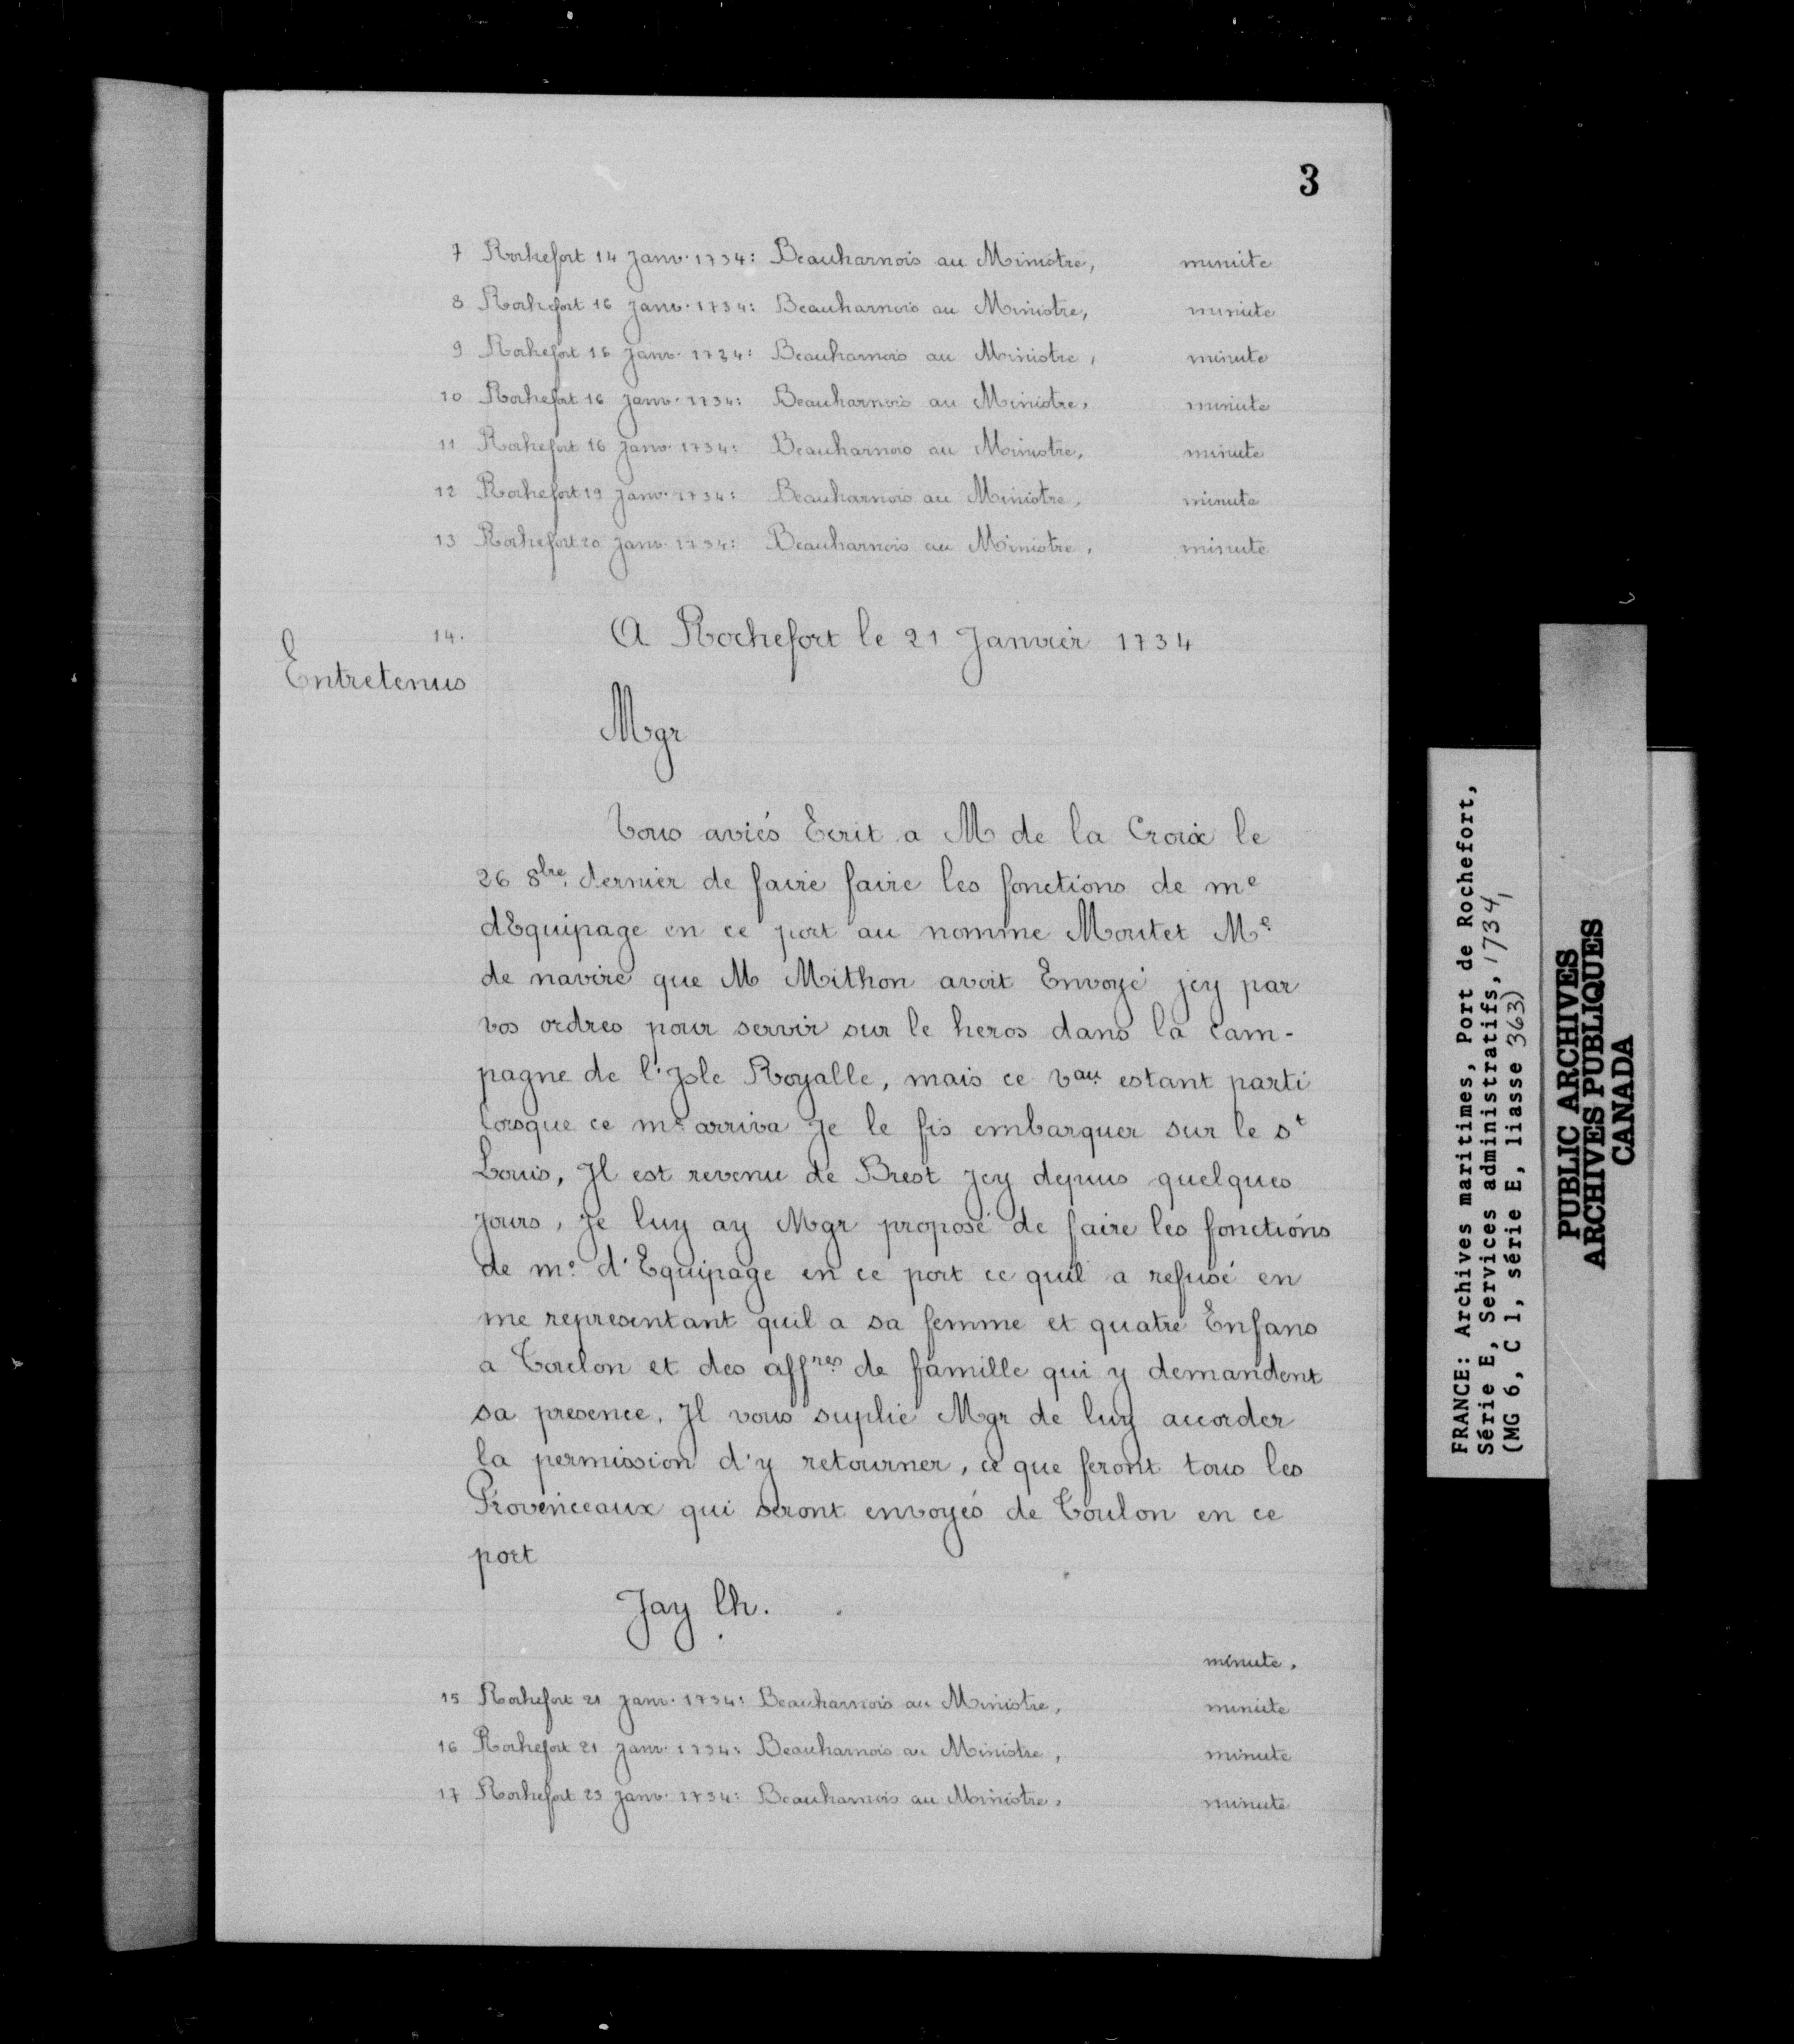 3
7 Rochefort 14 Janv. 1734: Beauharnois au Ministre, minute
8 Rochefort 16 Janv. 1734: Beauharnois au Ministre, minute
9 Rochefort 16 Janv. 1734: Beauharnois au Ministre, minute
10 Rochefort 16 Janv. 1734: Beauharnois au Ministre, minute
11 Rochefort 16 Janv. 1734: Beauharnois au Ministre, minute
12 Rochefort 19 Janv. 1734: Beauharnois au Ministre, minute
13 Rochefort 20 Janv. 1734: Beauharnois au Ministre, minute
14. A Rochefort le 21 Janvier 1734
Entretenus
Mgr
Vous aviés Ecrit a M de la Croix le
26 8bre. dernier de faire faire les fonctions de me
dEquipage en ce port au nomme Moutet Me
de navire que M Mithon avoit Envoyé jcy par
vos ordres pour servir sur le heros dans la cam-
pagne de l'Jsle Royalle, mais ce vau estant parti
lorsque ce me arriva Je le fis embarquer sur le st
Louis, Jl est revenu de Brest Jcy depuis quelques
Jours, Je luy ay Mgr proposé de faire les fonctions
de me d'Equipage en ce port ce quil a refusé en
me representant quil a sa femme et quatre Enfans
a Toulon et des affres de famille qui y demandent
sa presence. Jl vous suplie Mgr de luy accorder
la permission d'y retourner, ce que feront tous les
Provenceaux qui seront envoyés de Toulon en ce
port
Jay lh.
minute.
15 Rochefort 21 Janv. 1734: Beauharnois au Ministre, minute
16 Rochefort 21 Janv. 1734: Beauharnois au Ministre, minute
17 Rochefort 23 Janv. 1734: Beauharnois au Ministre, minute
FRANCE: Archives maritimes, Port de Rochefort,
Série E, Services administratifs, 1734,
(MG 6, C 1, série E, liasse 363)
PUBLIC ARCHIVES
ARCHIVES PUBLIQUES
CANADA